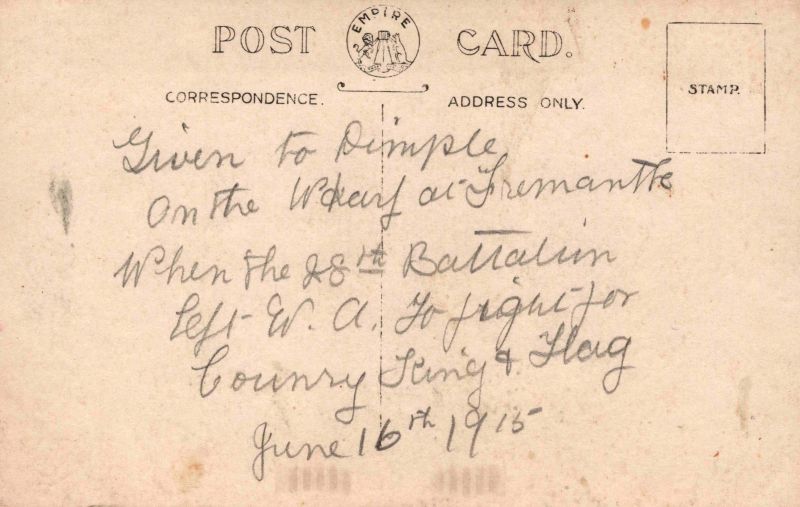 POST EMPIRE CARD.
CORRESPONDENCE. ADDRESS ONLY.
STAMP.
Given to Dimple
On the Wharf at Fremantle
When the 28th Battalion
left W. A. To fight for
Counry King & Flag
June 16th 1915